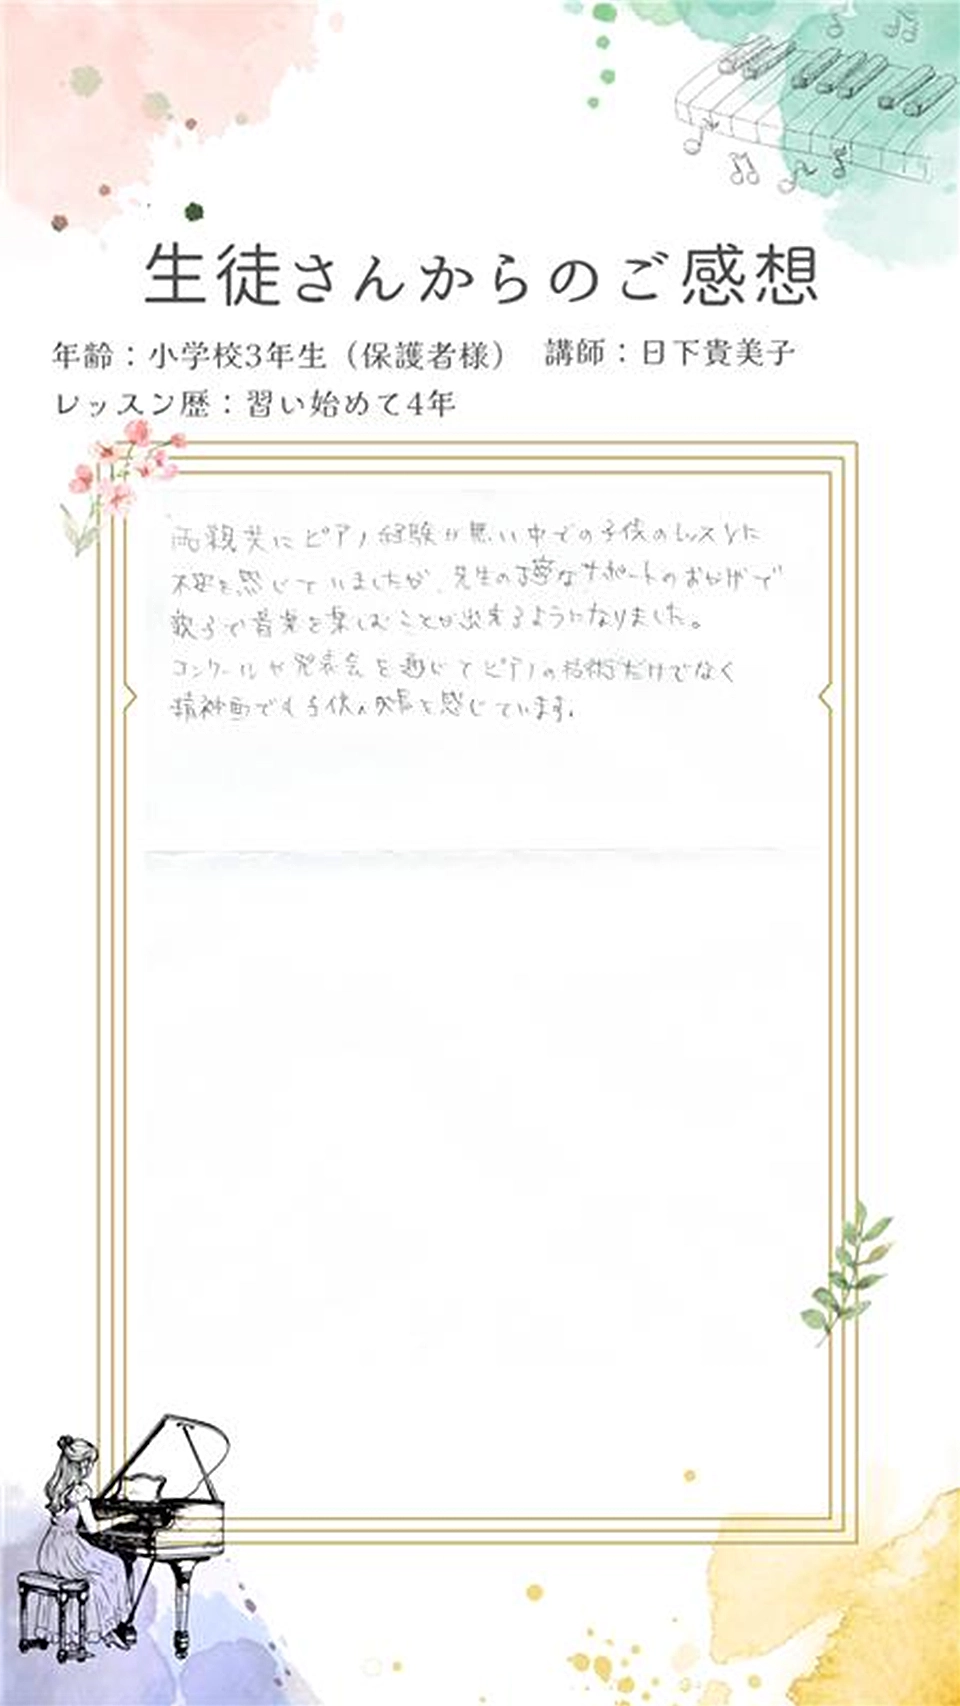 生徒さんからのご感想
年齢：小学校3年生（保護者様）　講師：日下貴美子
レッスン歴：習い始めて4年
両親共にピアノ経験が無い中での子供のレッスンに
不安を感じていましたが、先生の丁寧なサポートのおかげで
親子で音楽を楽しむことが出来るようになりました。
コンクールや発表会を通じてピアノの技術だけでなく
精神面でも子供の成長を感じています。